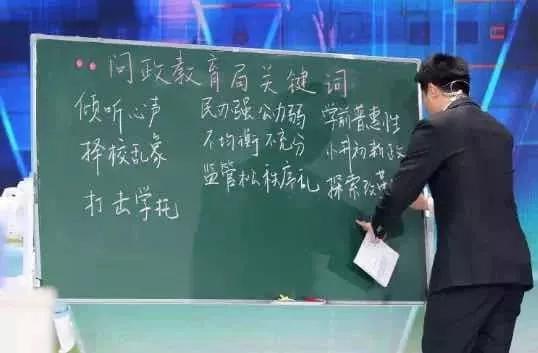 问政教育局关键词
倾听心声
择校乱象
打击学托
民办强公办弱
不均衡不充分
监管松秩序乱
学前普惠性
小升初新政
探索改革